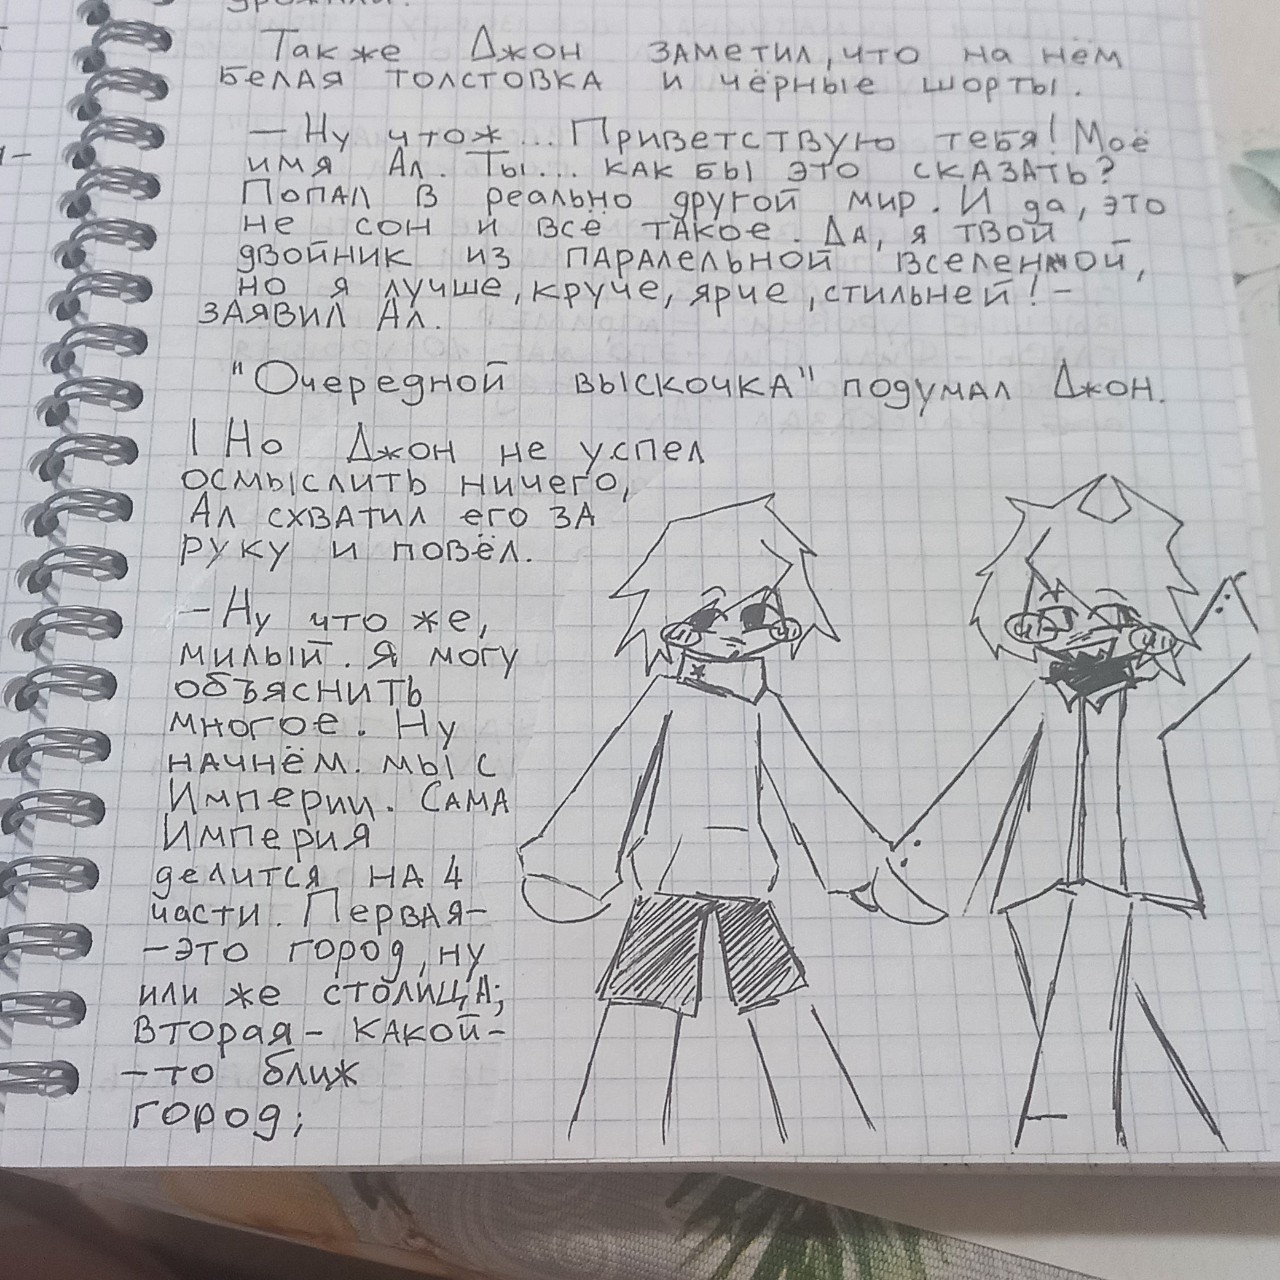 Также Джон заметил, что на нём
белая толстовка и чёрные шорты.
— Ну чтож... Приветствую тебя! Моё
имя Ал. Ты... как бы это сказать?
Попал в реально другой мир. И да, это
не сон и всё такое. Да, я твой
двойник из паралельной вселенной,
но я лучше, круче, ярче, стильней! –
заявил Ал.
"Очередной выскочка" подумал Джон.
Но Джон не успел
осмыслить ничего,
Ал схватил его за
руку и повёл.
– Ну что же,
милый. Я могу
объяснить
многое. Ну
начнём. мы с
Империи. Сама
Империя
делится на 4
части. Первая–
–это город, ну
или же столица;
вторая – какой–
–то ближ
город;